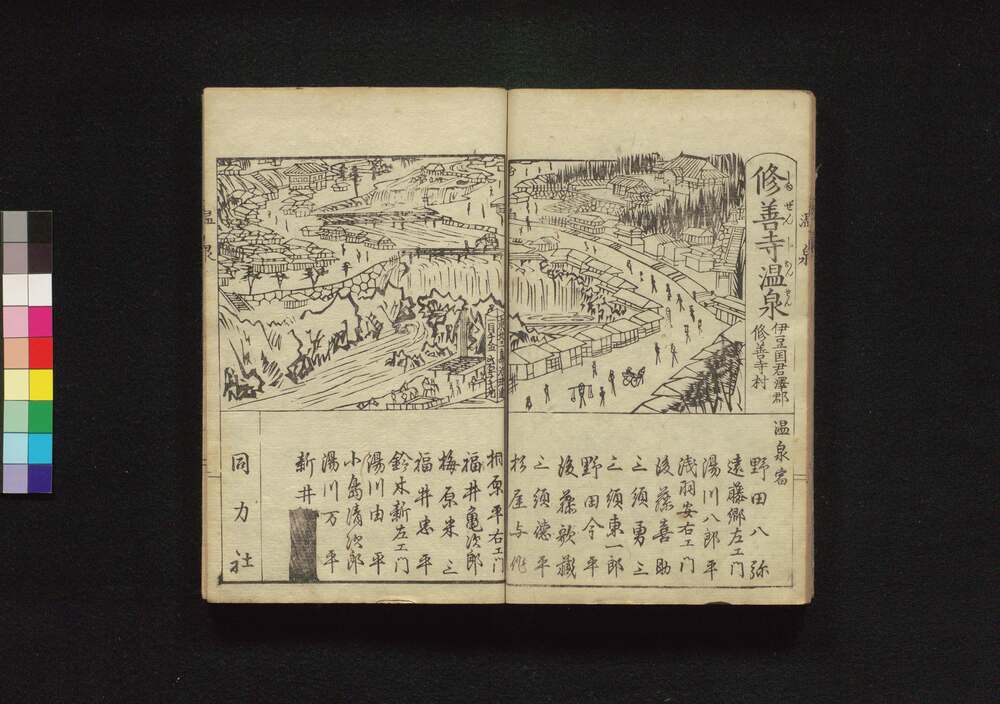 修善寺温泉
しゆぜんじおんせん
伊豆国君澤郡
修善寺村
温泉宿
野田八弥
遠藤郷左エ門
湯川八郎平
浅羽安右エ門
後藤善助
三須勇三
三須東一郎
野田今平
後藤歌蔵
三須徳平
松屋与作
桐原平右エ門
福井亀次郎
梅原米三
福井忠平
鈴木新左エ門
湯川由平
小島清次郎
湯川万平
新井
同力社
温泉
温泉